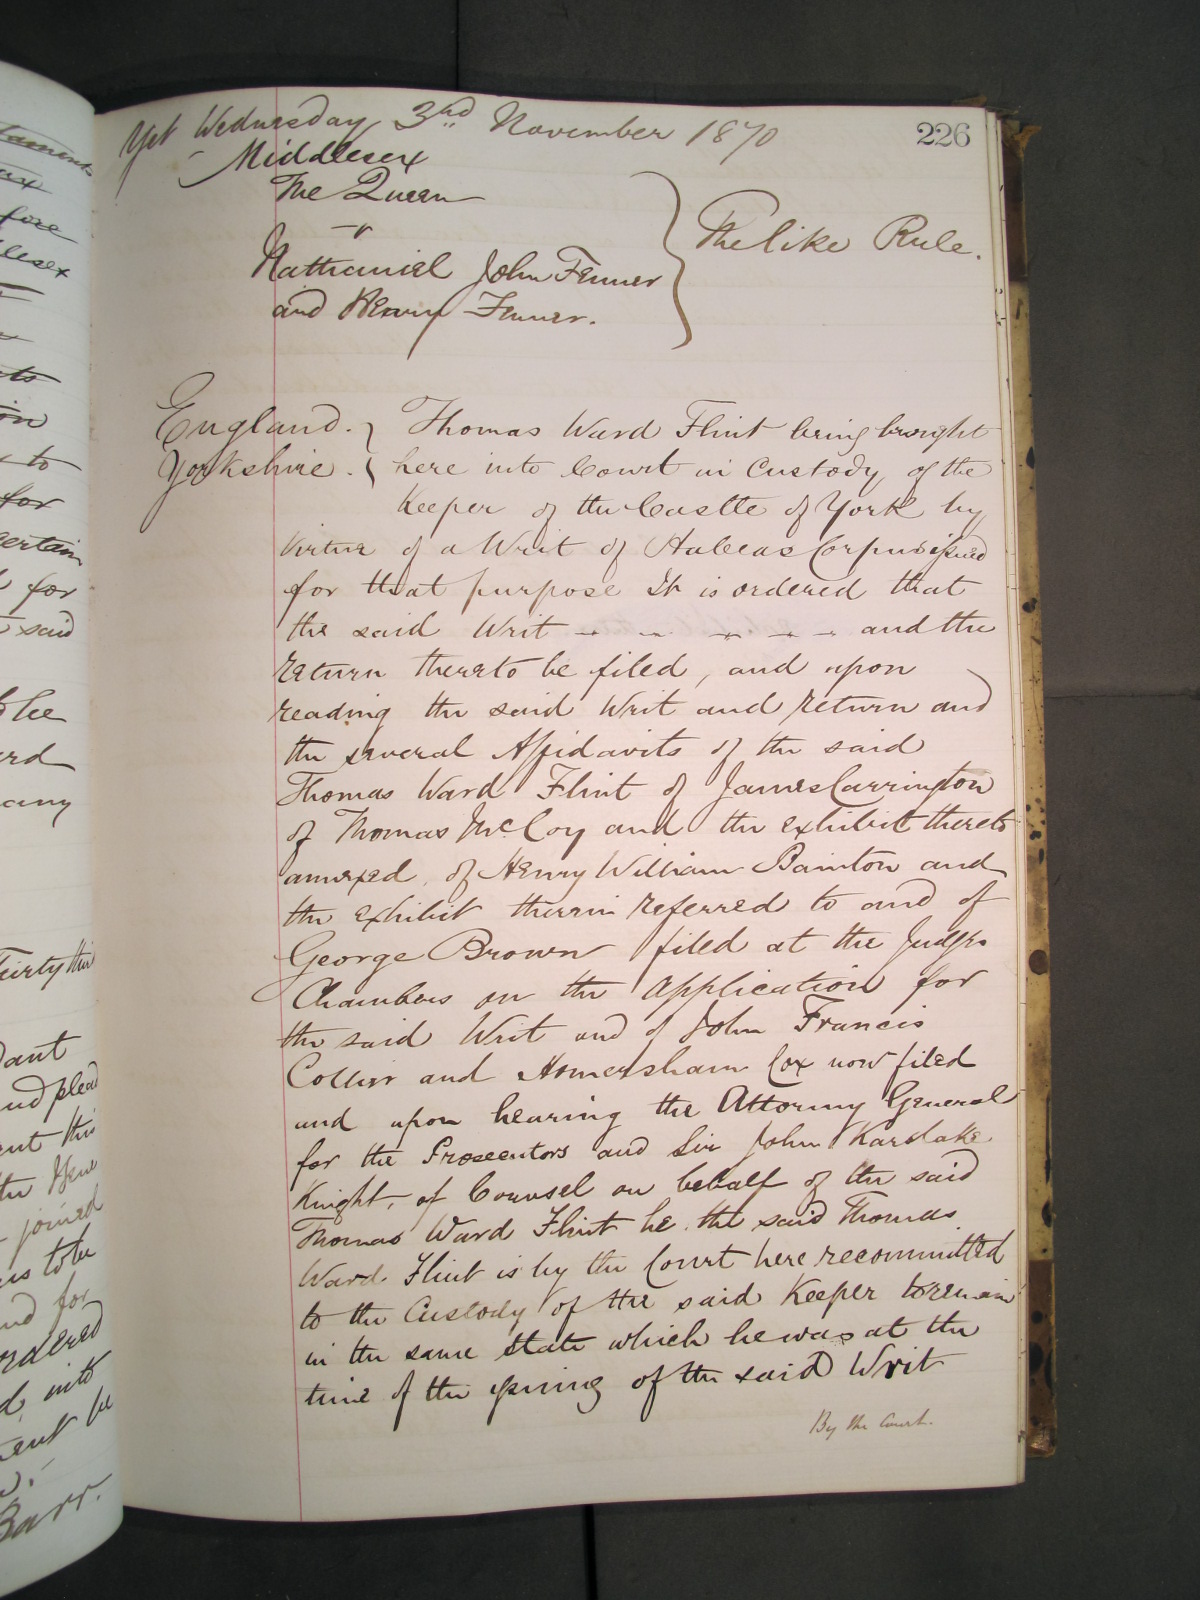 226
Yet Wednesday 3rd November 1870
Middlesex
The Queen
v
Nathaniel John Fenner
and Henry Fenner.
The like Rule.
England.
Yorkshire.
Thomas Ward Flint being brought
here into Court in Custody of the
Keeper of the Castle of York by
virtue of a Writ of Habeas Corpus issued
for that purpose It is ordered that
the said Writ - - - - - and the
return thereto be filed, and upon
reading the said Writ and return and
the several Affidavits of the said
Thomas Ward Flint of James Carrington
of Thomas McCoy and the exhibit thereto
annexed, of Henry William Bainton and
the exhibit therein referred to and of
George Brown filed at the Judges
Chambers on the application for
the said Writ and of John Francis
Collier and Homersham Cox now filed
and upon hearing the Attorney General
for the Prosecutors and Sir John Karslake
Knight, of Counsel on behalf of the said
Thomas Ward Flint he the said Thomas
Ward Flint is by the Court here recommitted
to the Custody of the said Keeper to remain
in the same state which he was at the
time of the issuing of the said Writ
By the Court.
fore
to
for
certain
for
said
to be
any
Thirty
and plead
joined
to be
and for
ordered
into
be
Barr.